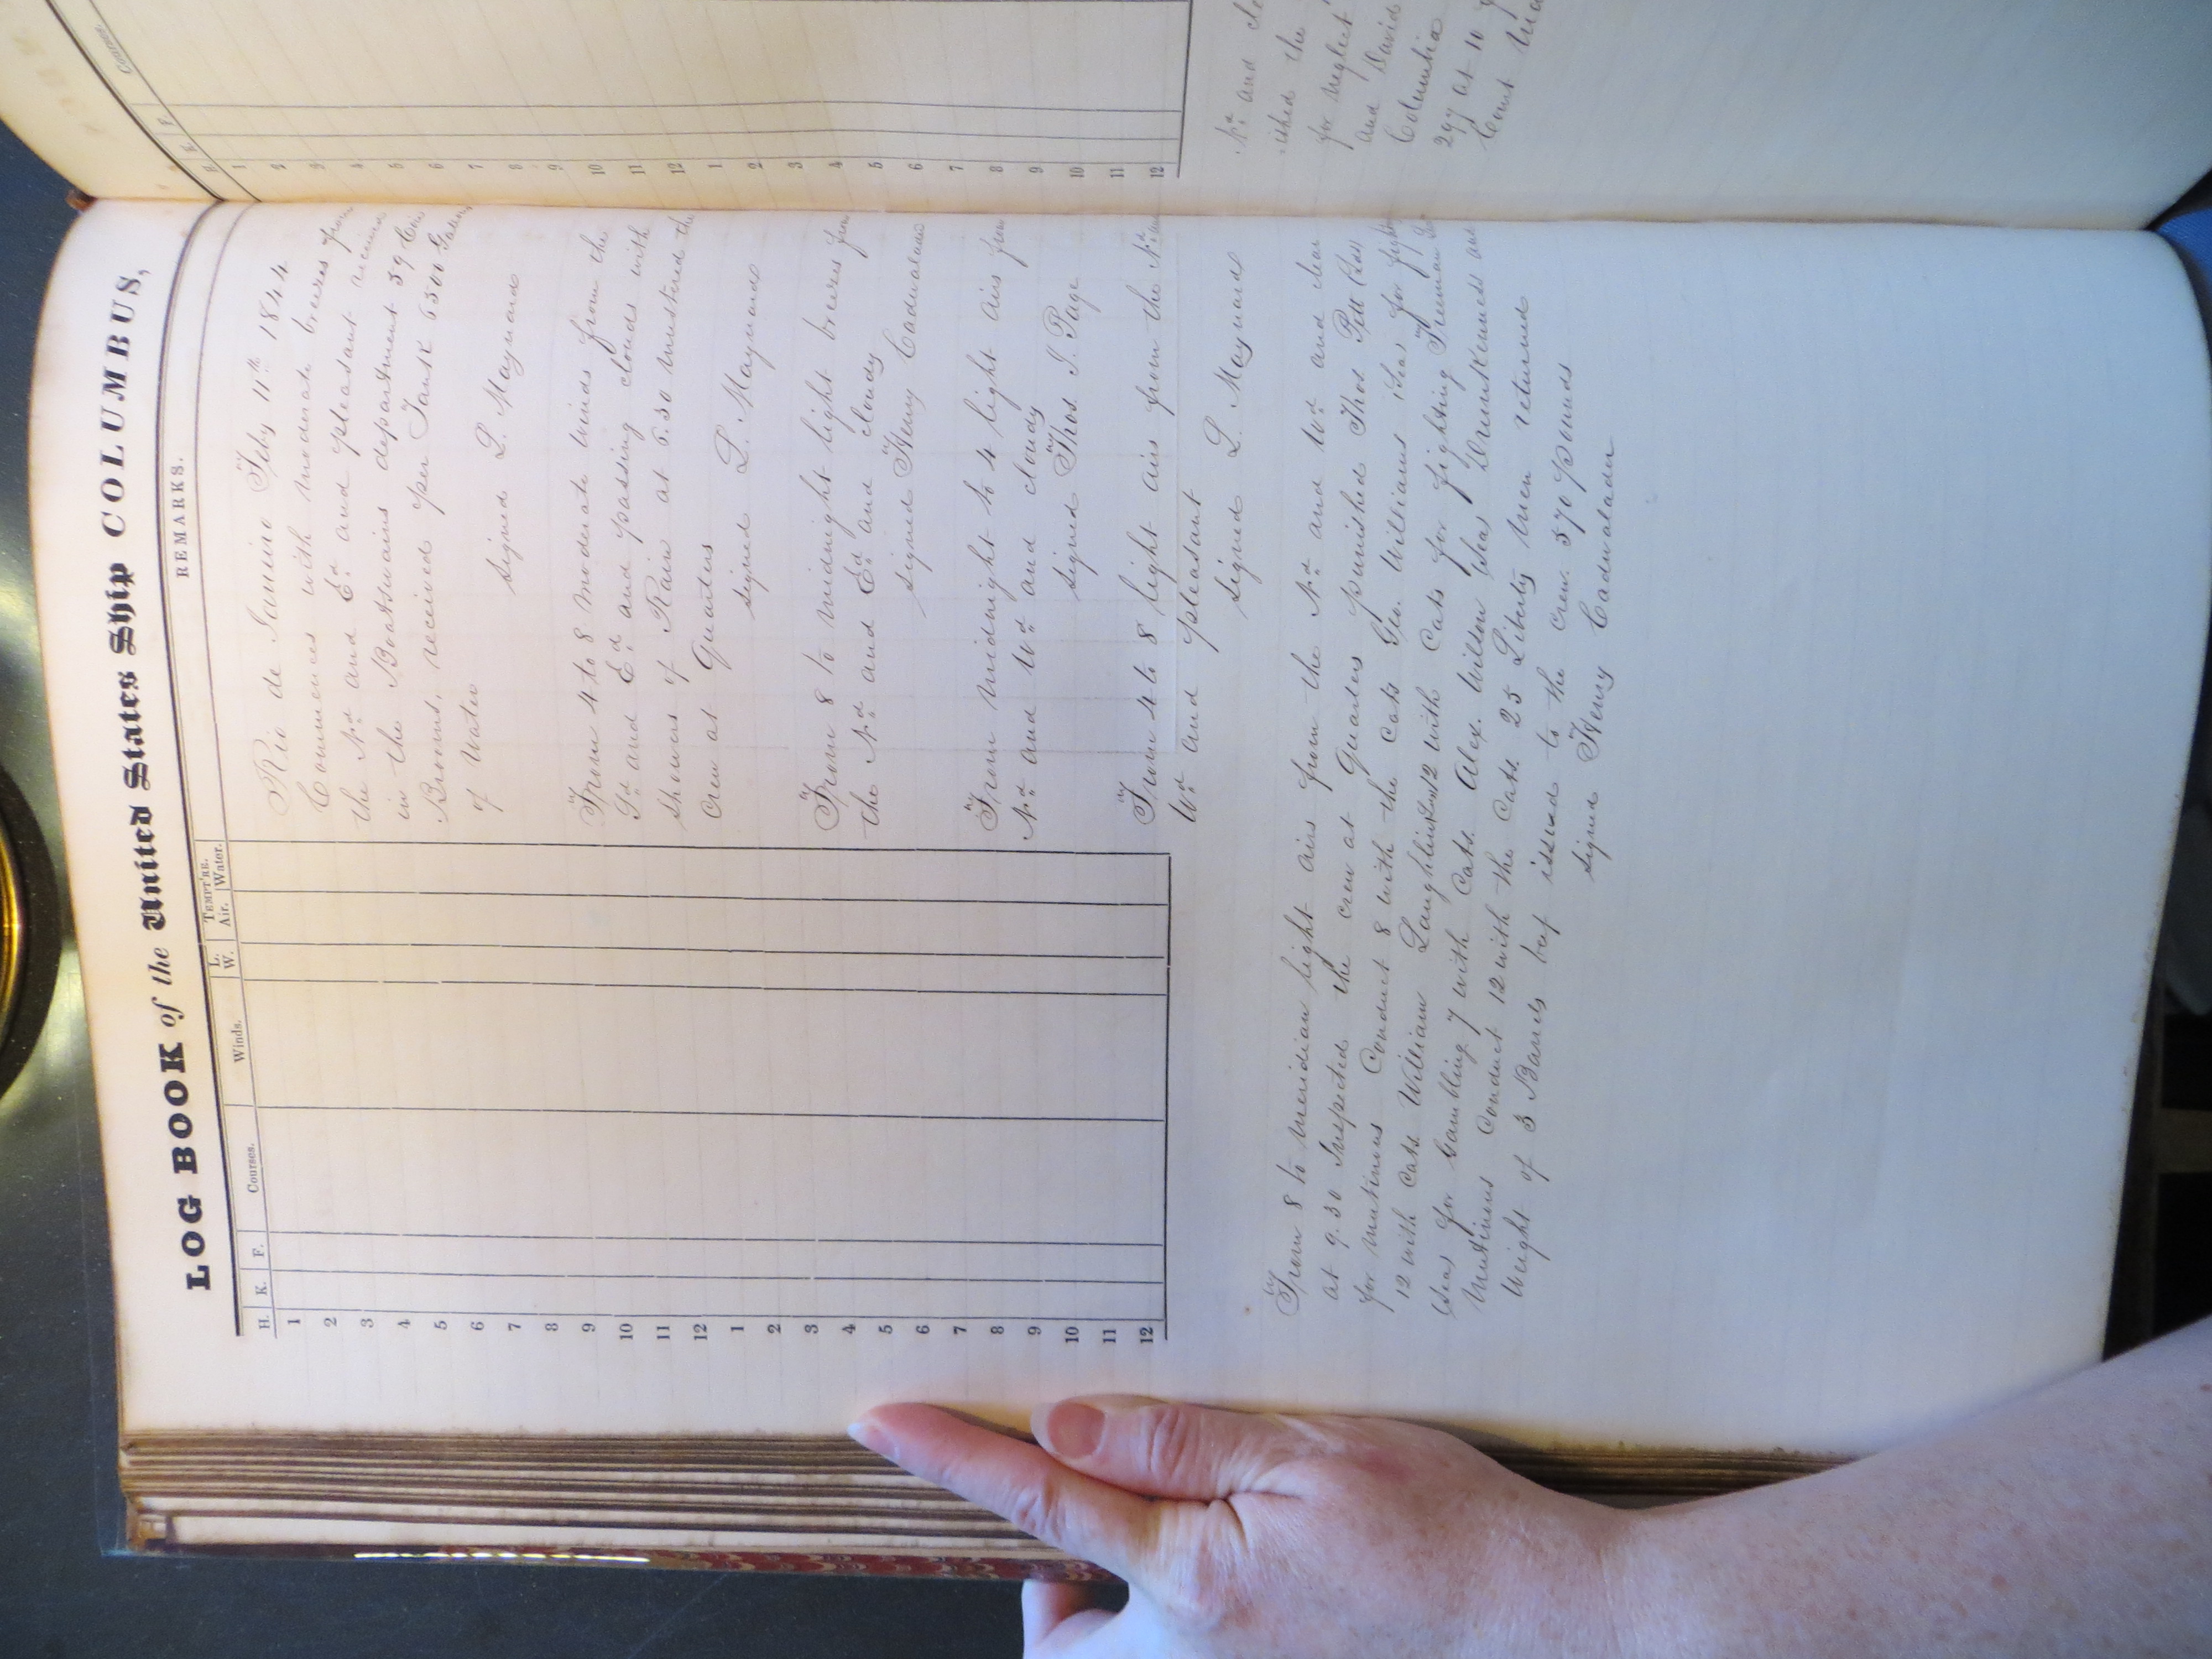 LOG BOOK of the United States Ship COLUMBUS,
H. K. F. Courses. Winds. L. W. TEMPT'RE. Air. Water. REMARKS.
1
2
3
4
5
6
7
8
9
10
11
12
1
2
3
4
5
6
7
8
9
10
11
12
Rio de Janeiro Feby 11th 1844
Commences with moderate breezes from
the Nd and Ed and pleasant
in the Boatswains department 39
Brooms, received per Tank 6500
of Water
signed L. Maynard
From 4 to 8 moderate winds from the
Sd and Ed and passing clouds with
showers of Rain at 6.30 mustered the
crew at Quarters
signed L. Maynard
From 8 to midnight light breezes from
the Nd and Ed and cloudy
signed Henry Cadwalader
From midnight to 4 light airs from
Nd and Wd and cloudy
signed Thos. J. Page
From 4 to 8 light airs from the Nd
Wd and pleasant
signed L. Maynard
From 8 to meridian light airs from the Nd and Wd and clear
at 9.30 Inspected the crew at Quarters punished Thos
for mutinous Conduct 8 with the Cats Geo. Williams (Sea) for
12 with Cats William Laughlin 12 with Cats for fighting Freeman
(Sea) for Gambling 7 with Cats. Alex. Wilson (Sea) Drunkenness and
Mutinous Conduct 12 with the Cats. 25 Liberty men returned
Weight of 3 Barrels beef issued to the crew. 570 pounds
signed Henry Cadwalader
H. K. F. Courses
1
2
3
4
5
6
7
8
9
10
11
12
1
2
3
4
5
6
7
8
9
10
11
12
Nd and
ished the
for neglect
and David
Columbia
at 10
Court